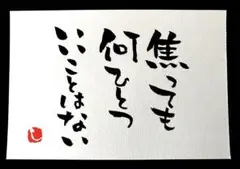 焦っても
何ひとつ
いいことはない